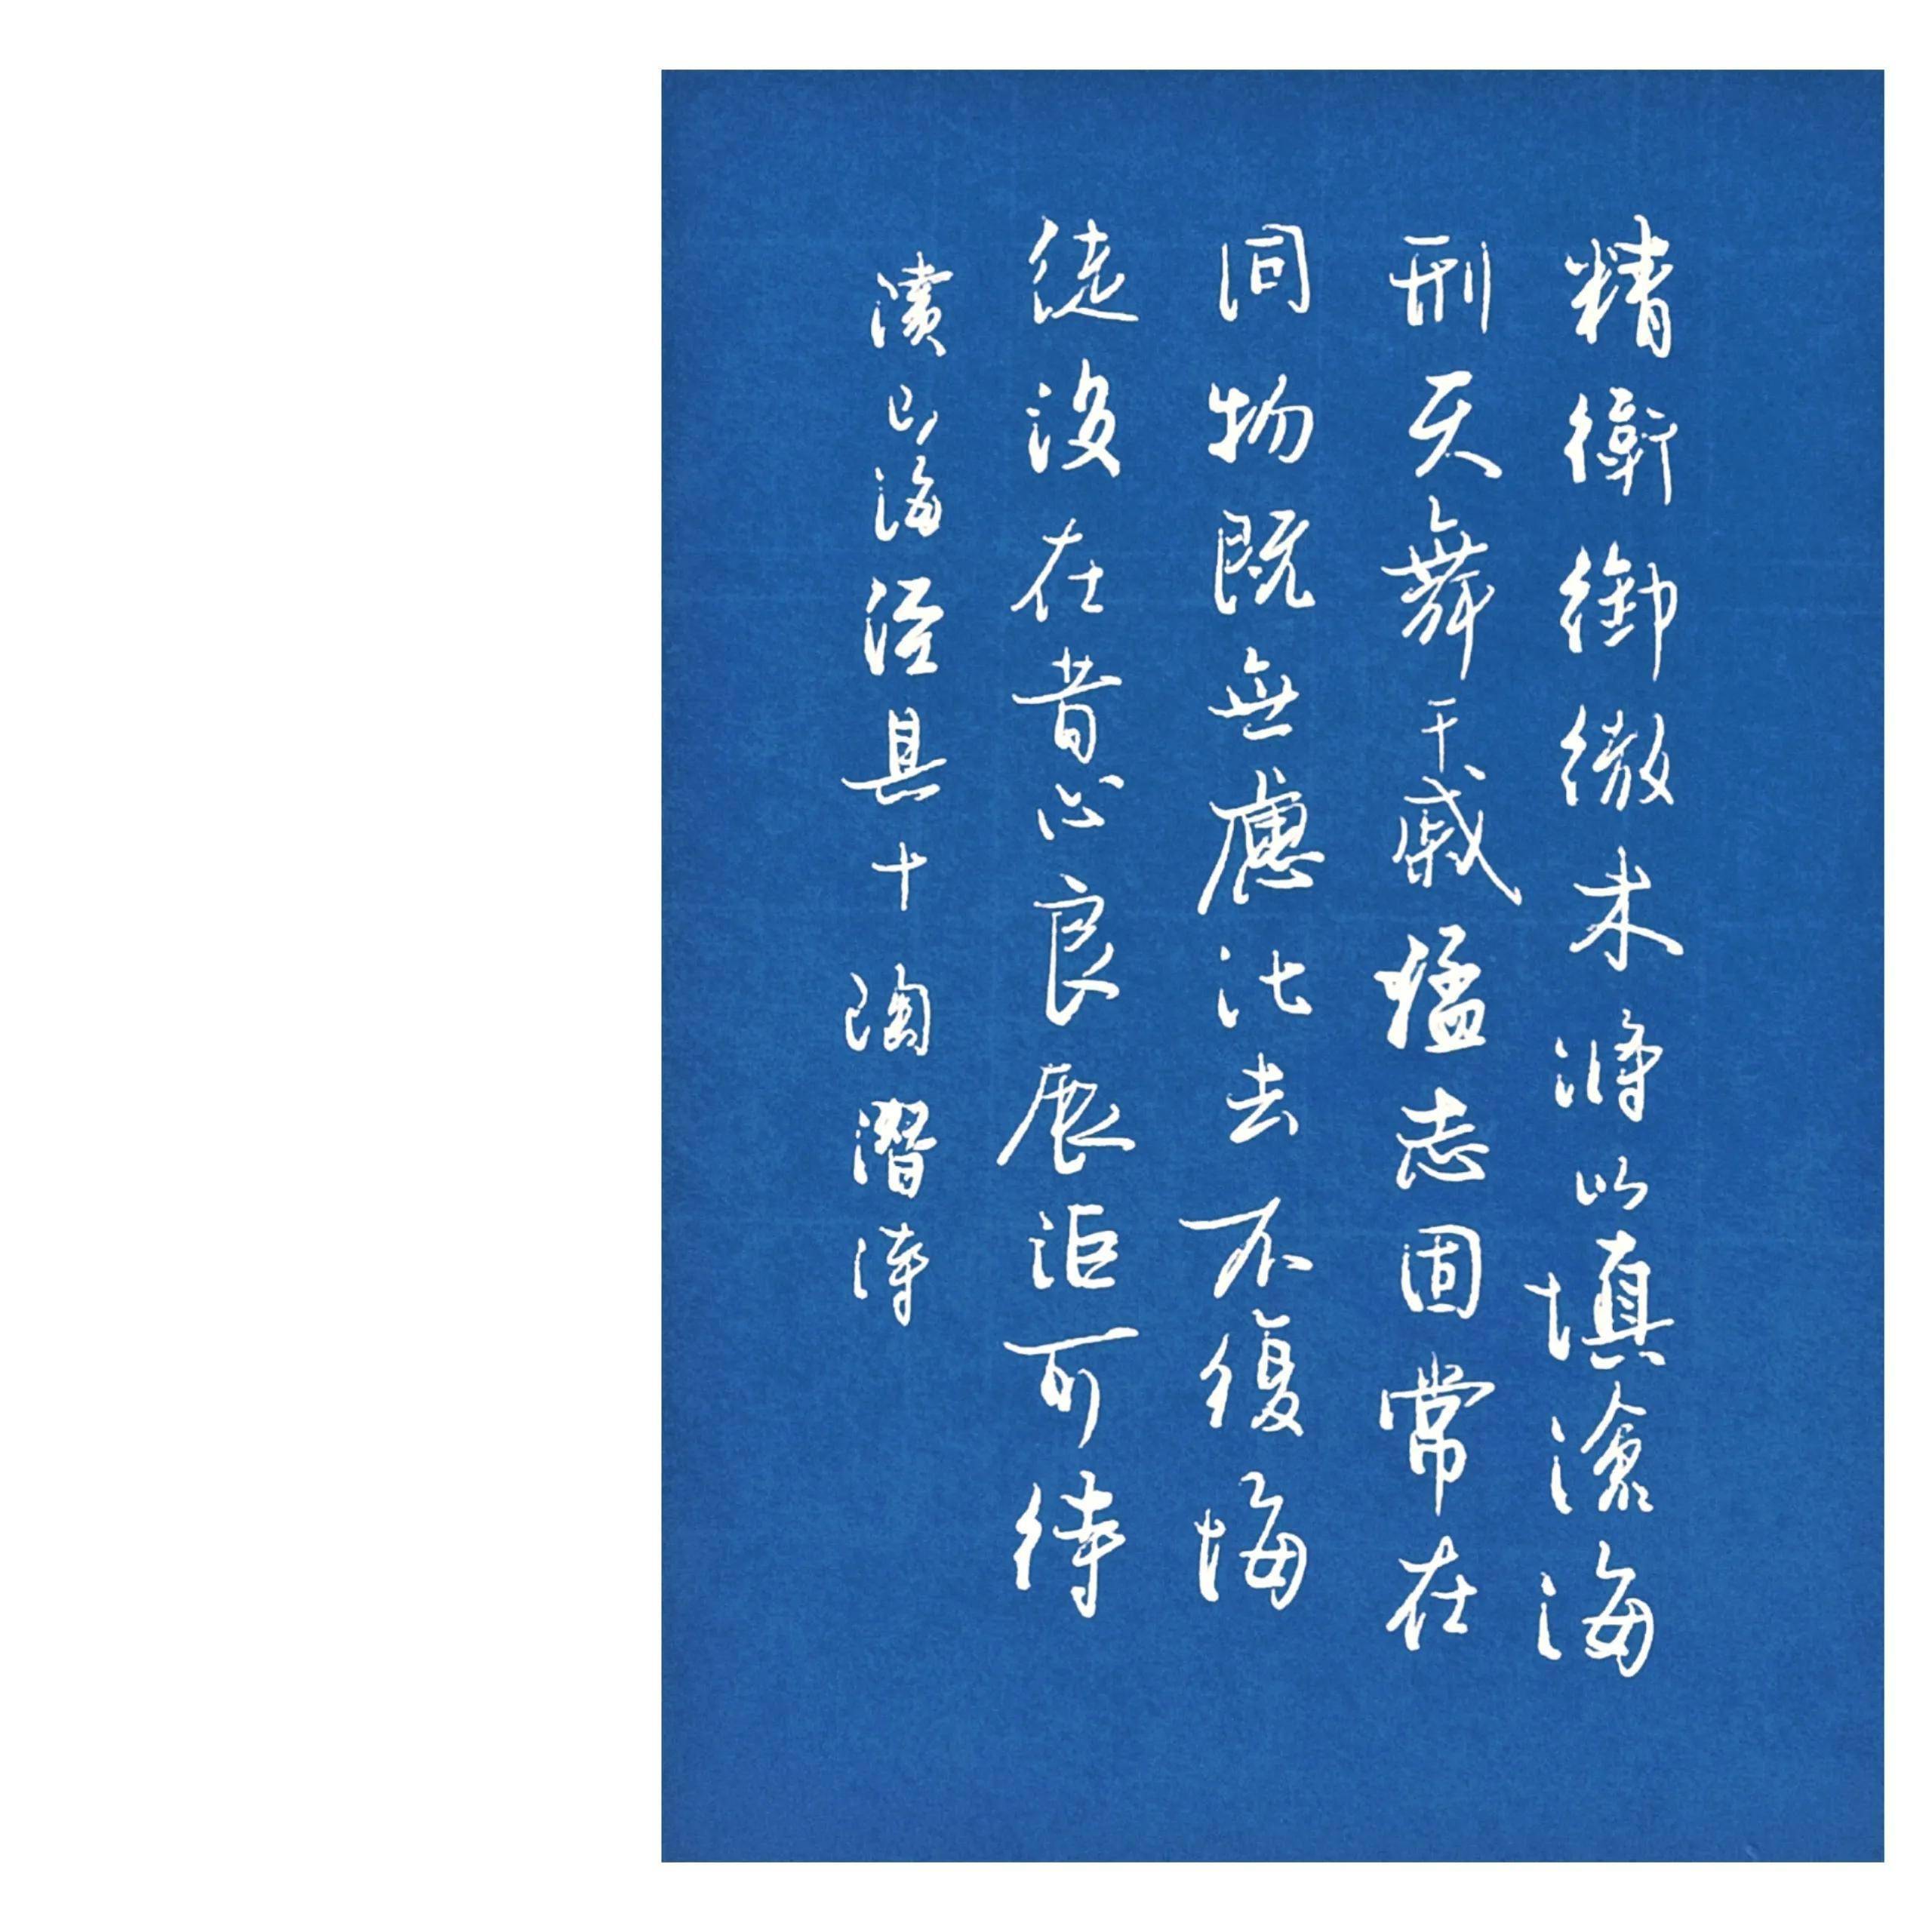 精衛銜微木將以填滄海
刑天舞干戚猛志固常在
同物既無慮化去不復悔
徒設在昔心良辰詎可待
讀山海經其十 陶潛詩